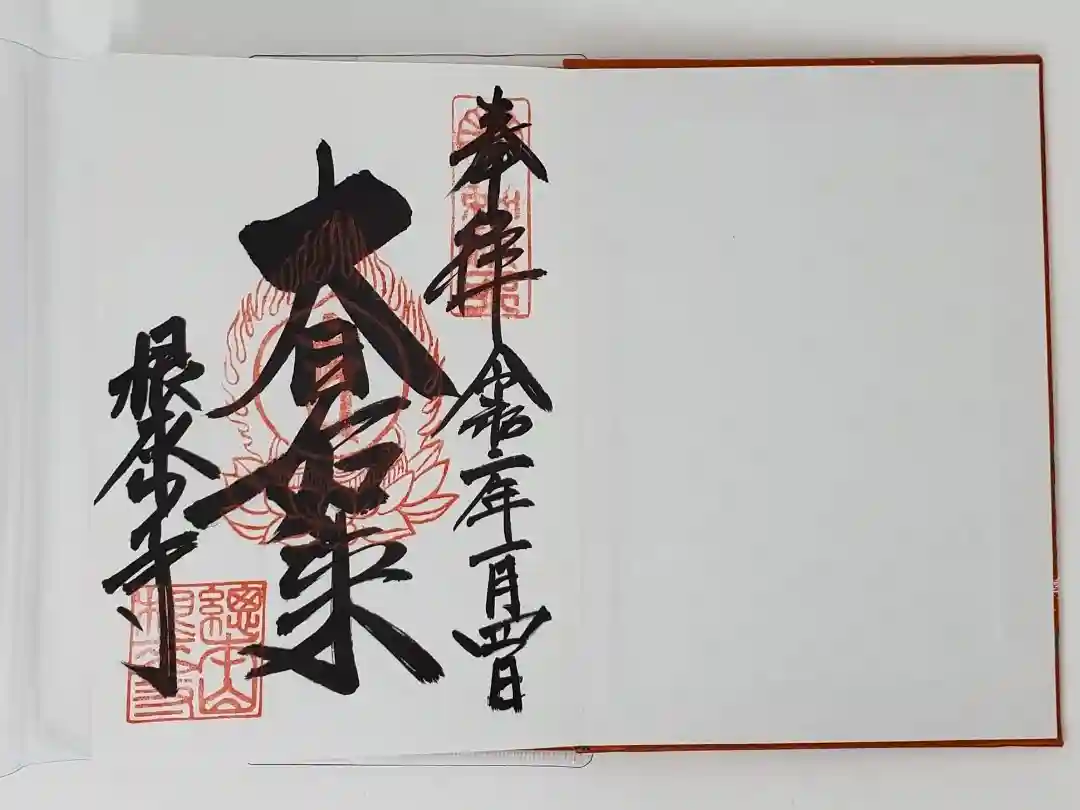 奉拝 令和二年一月四日
大日如来
根来寺
總本山